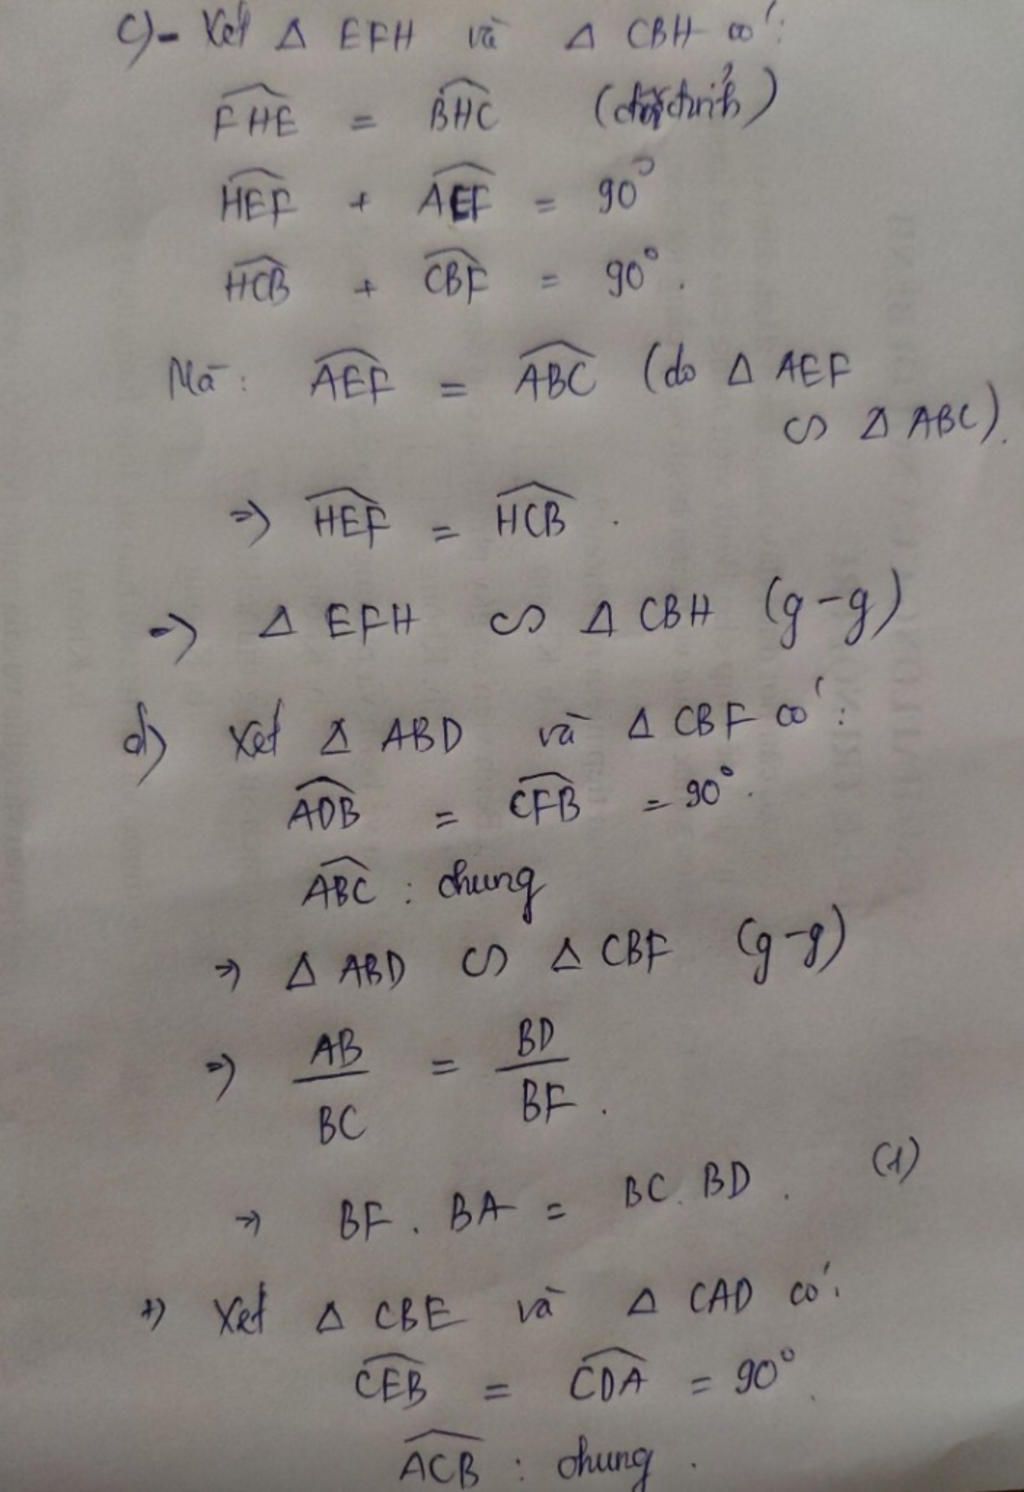 c)- Xét Δ EFH và Δ CBH có:
∠FHE = ∠BHC (đối đỉnh)
∠HEF + ∠AEF = 90°
∠HCB + ∠CBF = 90°.
Mà: ∠AEF = ∠ABC (do Δ AEF
∽ Δ ABC).
⇒ ∠HEF = ∠HCB.
⇒ Δ EFH ∽ Δ CBH (g-g)
d) Xét Δ ABD và Δ CBF có:
∠ADB = ∠CFB = 90°.
∠ABC : chung
⇒ Δ ABD ∽ Δ CBF (g-g)
⇒ AB/BC = BD/BF.
⇒ BF . BA = BC . BD. (1)
+) Xét Δ CBE và Δ CAD có:
∠CEB = ∠CDA = 90°.
∠ACB : chung.